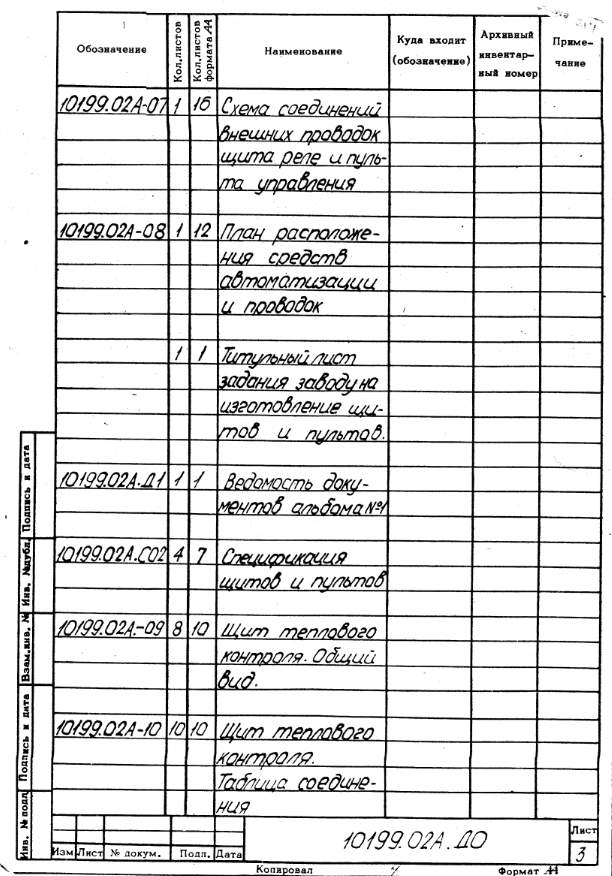 Обозначение Кол.листов Кол.листов формата А4 Наименование Куда входит (обозначение) Архивный инвентар- ный номер Приме- чание
10199.02А-07 1 16 Схема соединений
внешних проводок
щита реле и пуль-
та управления
10199.02А-08 1 12 План расположе-
ния средств
автоматизации
и проводок
1 1 Титульный лист
задания заводу на
изготовление щи-
тов и пультов.
10199.02А.Д1 1 1 Ведомость доку-
ментов альбома №1
10199.02А.СО2 4 7 Спецификация
щитов и пультов
10199.02А.-09 8 10 Щит теплового
контроля. Общий
вид.
10199.02А-10 10 10 Щит теплового
контроля.
Таблица соедине-
ния
Инв. № подл. Подпись и дата Взам.инв. № Инв. №дубл. Подпись и дата
Изм Лист № докум. Подп. Дата
10199.02А.ДО
Лист
3
Копировал Формат А4